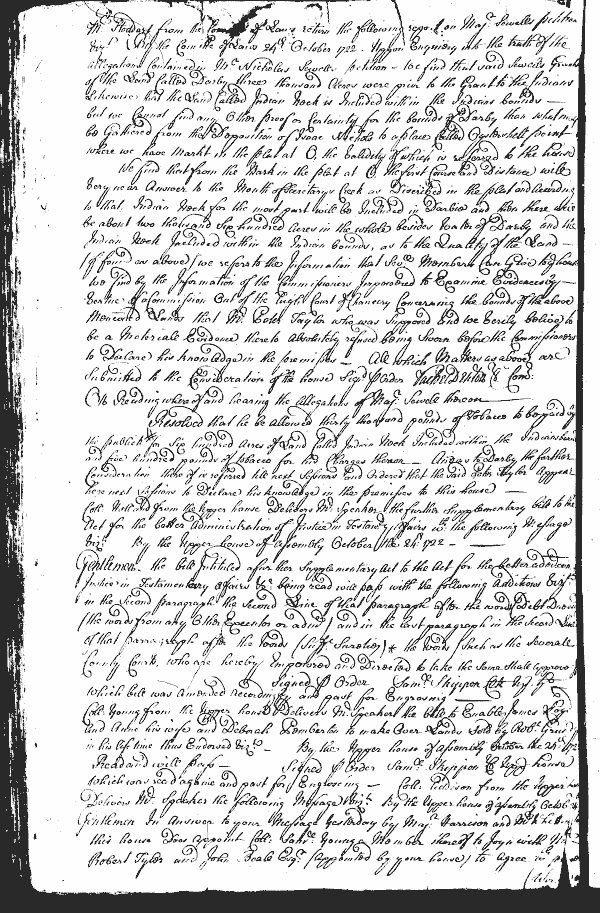 Mr. Stoddart from the Committee of Laws return the following report on Majr. Sewells petition
By the Comittee of Laws 24th. October 1722. Upon Enquiery into the truth of the
allegations Contained in Mr. Nicholas Sewells petition we find that said Sewells Grants
of the Land Called Darby three thousand Acres were prior to the Grant to the Indians
Likewise that the Land Called Indian Neck is Included within the Indians bounds
but we Cannot find any Other proof or Certainty for the bounds of Darby then what may
be Gathered from the Deposition of Isaac Nichols to a place Called Oystershell point
where we have Markt in the plat at O, the Validity of which is referred to the house
We find that from the Mark in the plat at O the first Course and Distance will
very near Answer to the Mouth of Secretarys Creek as Discribed in the plat and According
to that, Indian Neck for the most part will be Included in Darbie and then there will
be about two thousand Six hundred Acres in the whole besides Water of Darby and the
Indian Neck Included within the Indian bounds, as to the Quality of the Land
(if found as above) we refer to the Information that Sevll. Members Can Give the house
we find by the Information of the Commissioners Impowered to Examine Evidences by
Vertue of a Commission Out of the High Court of Chancery Concerning the bounds of the above
Menconed Lands that Mr. Peter Taylor who was Supposed and we verily believe to
be a Materiale Evidence there to Absolutely refused being Sworn before the Commissioners
to Declare his knowledge in the premisses All which Matters as above are
Submitted to the Consideration of the house Signd. P Order
On Reading whereof and hearing the Allegations of Majr. Sewell thereon
Resolved that he be allowed thirty thousand pounds of Tobacco to be paid by
the publick for Six hundred Acres of Land called Indian Neck Included within the Indians bounds
and five hundred pounds of tobacco for the Charges thereon And as to Darby the further
Consideration thereof is referred till next Sessions and Ordered that the said Peter Taylor Appear
here next Sessions to Declare his knowledge in the premisses to this house
Coll. from the upper house Delivers Mr. Speaker the further Supplementary bill to the
Act for the better Administration of Justice in Testamentary Affairs wth. the following Message
Vizt. By the Upper house of Assembly October the 24th. 1722
Gentlemen the bill Intituled a further Supplementary Act to the Act for the better administration
Justice in Testamentary affairs &c. being read will pass with the following Addictions Vizt.
in the Second paragraph the Second Line of that paragraph after the words Debt Due
(the words from any Other Executor or admr.) and in the last paragraph in the Second Line
of that parragraph after the Words (Suff. Sureties) the Words (Such as the Severall
County Courts who are hereby Empowered and Directed to take the Same Shall approve
Signed P Order Saml. Skippon Clk
which bill was amended accordingly and past for Engrossing
Coll. Young from the upper house Delivers Mr. Speaker the bill to Enable James Lloyd
and Anne his wife and Deborah Pemberton to make Over Lands Sold by Robt. Grundy
in his life time thus Endorsed Vizt. By the Upper house of Assembly October the 24th. 1722
Read and will pass Signed P Order Saml. Skippon Cl. Uppr. house
which was read againe and past for Engrossing Coll. Addison from the Upper house
Delivers Mr. Speaker the following Message Vizt. By the Upper house of Assembly October
Gentlemen In Answer to your Message Yesterday by Majr. Harrison and
this house Does Appoint Coll. Saml. Young a Member thereof to Joyn with
Robert Tyler and John Beale Esqr. (appointed by your house) to Agree wth.